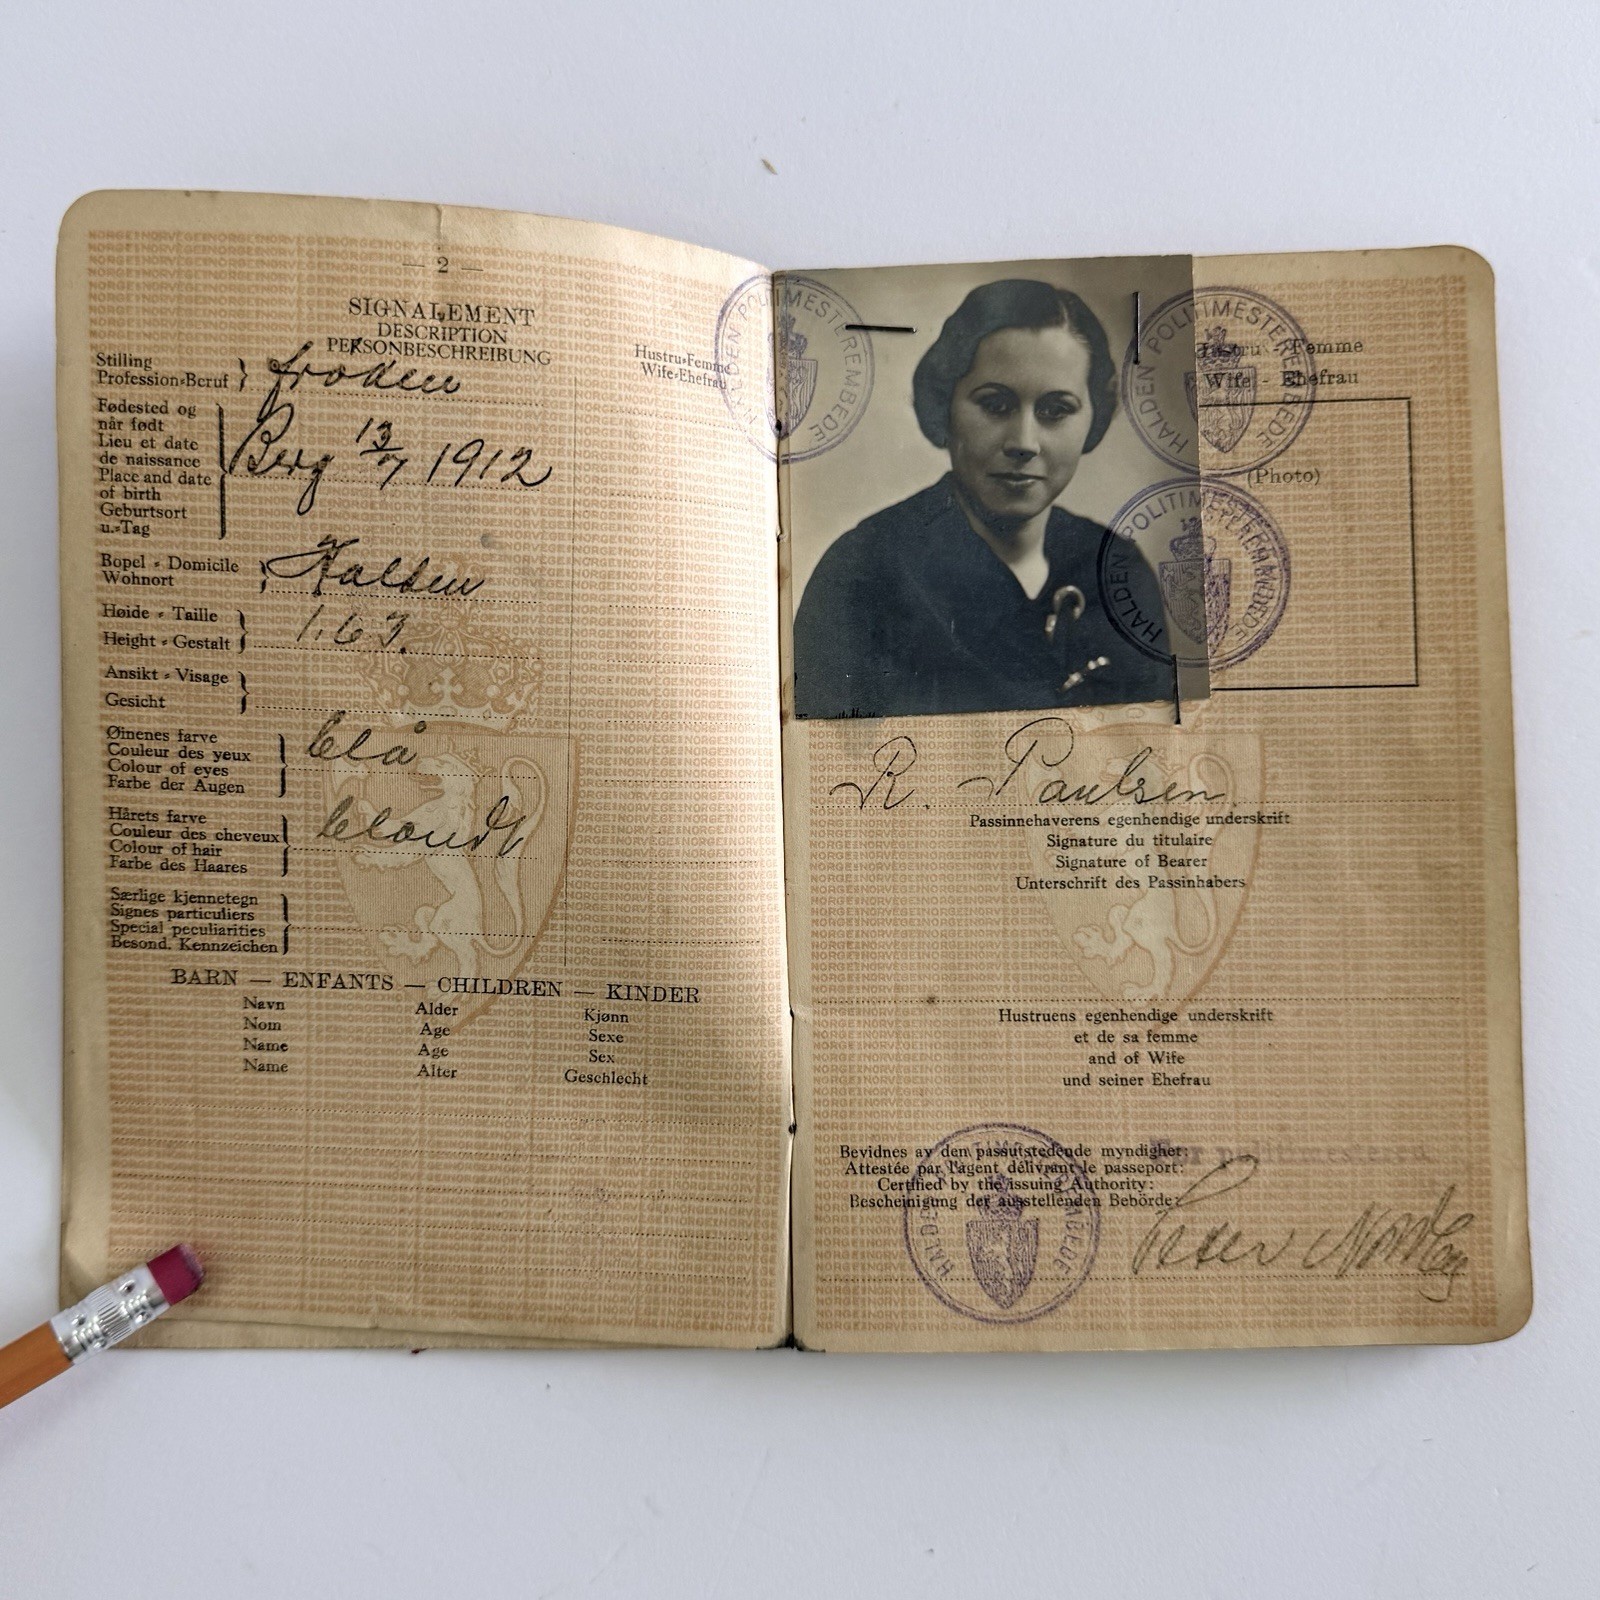 — 2 —
SIGNALEMENT
DESCRIPTION
PERSONBESCHREIBUNG
Hustru-Femme
Wife-Ehefrau
Stilling
Profession-Beruf
frøken
Fødested og
når født
Lieu et date
de naissance
Place and date
of birth
Geburtsort
u.-Tag
Berg 13/7 1912
Bopel - Domicile
Wohnort
Halden
Høide - Taille
Height - Gestalt
1.63.
Ansikt - Visage
Gesicht
Øinenes farve
Couleur des yeux
Colour of eyes
Farbe der Augen
blå
Hårets farve
Couleur des cheveux
Colour of hair
Farbe des Haares
blondt
Særlige kjennetegn
Signes particuliers
Special peculiarities
Besond. Kennzeichen
BARN — ENFANTS — CHILDREN — KINDER
Navn Alder Kjønn
Nom Age Sexe
Name Age Sex
Name Alter Geschlecht
HALDEN POLITIMESTEREMBEDE
HALDEN POLITIMESTEREMBEDE
Hustru - Femme
Wife - Ehefrau
(Photo)
HALDEN POLITIMESTEREMBEDE
R. Paulsen.
Passinnehaverens egenhendige underskrift
Signature du titulaire
Signature of Bearer
Unterschrift des Passinhabers
Hustruens egenhendige underskrift
et de sa femme
and of Wife
und seiner Ehefrau
Bevidnes av den passutstedende myndighet:
Attestée par l'agent délivrant le passeport:
Certified by the issuing Authority:
Bescheinigung der ausstellenden Behörde:
For politimesteren
Peter